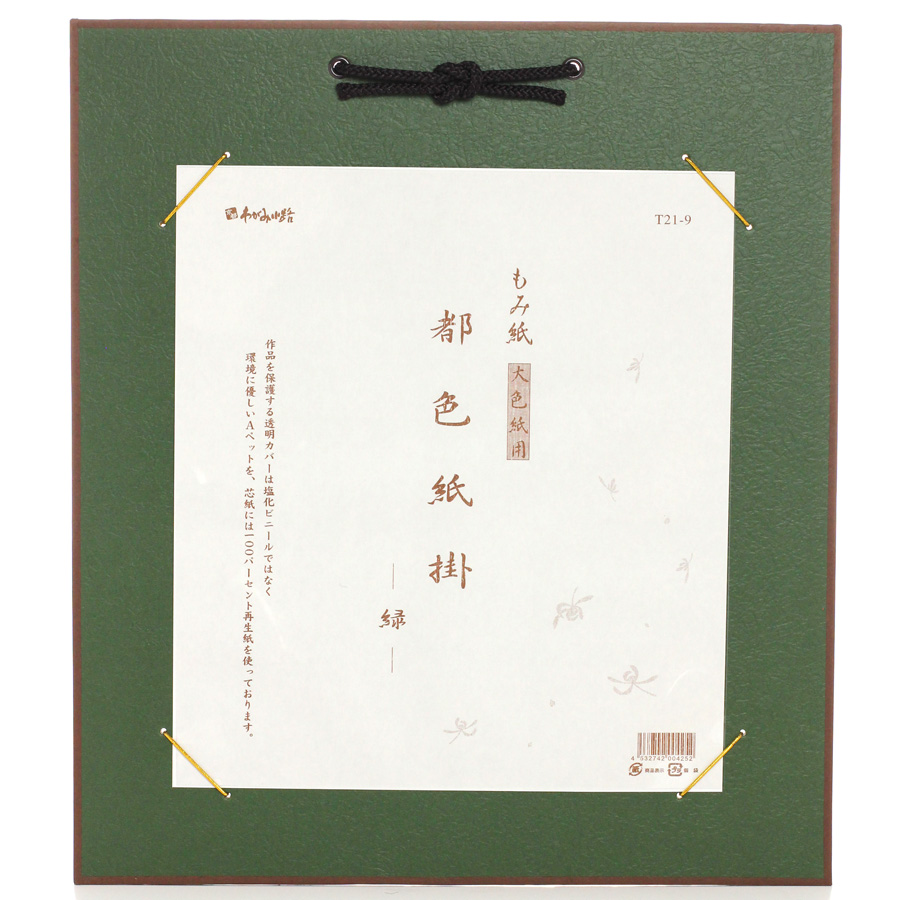 わがみ小路
T21-9
もみ紙
大色紙用
都色紙掛
緑
作品を保護する透明カバーは塩化ビニールではなく
環境に優しいAペットを、芯紙には100パーセント再生紙を使っております。
4 532742 004252